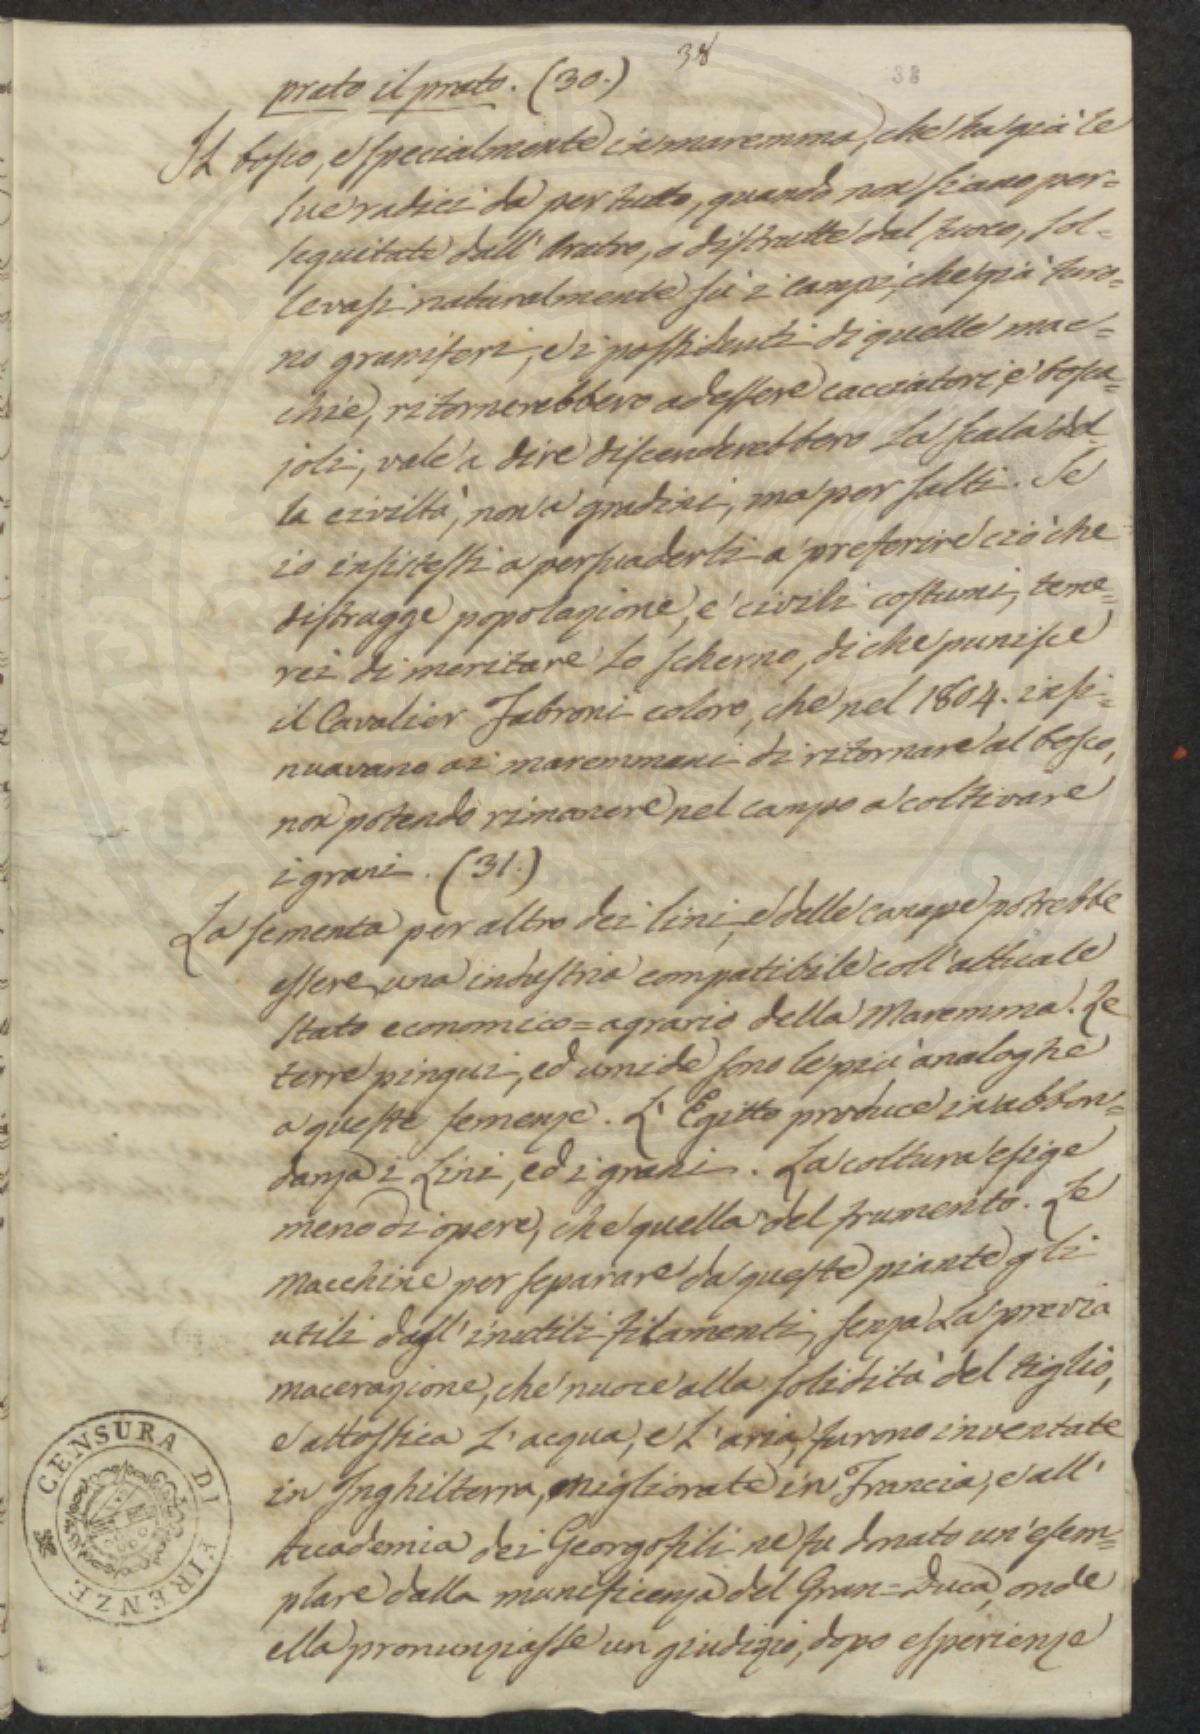 38
38
prato il prato. (30.)
Il bosco, e specialmente in maremma, che ha già le
sue radici da per tutto, quando non siano per=
seguitate dall' Aratro, o distrutte dal fuoco, sol=
levasi naturalmente sù i campi, che già furo=
no graniferi, e i possidenti di quelle mac=
chie, ritornerebbero ad essere cacciatori, e bosca=
joli, vale a dire discenderebbero la scala del
la civiltà, non a gradini, ma per salti. Se
io insistessi a persuaderli a preferire ciò che
distrugge popolazione, e civili costumi, teme=
rei di meritare lo scherno, di che punisce
il Cavalier Fabroni coloro, che nel 1804. insi=
nuavano ai maremmani di ritornare al bosco,
non potendo rimanere nel campo a coltivare
i grani. (31.)
La sementa per altro dei lini, e delle canape potrebbe
essere una industria compatibile coll' attuale
stato economico=agrario della Maremma. Le
terre pingui, ed umide sono le più analoghe
a queste semenze. L' Egitto produce in abbon=
danza i Lini, ed i grani. La coltura esige
meno di opere, che quella del frumento. Le
macchine per separare da queste piante gli
utili dagl' inutili filamenti, senza la previa
macerazione, che nuoce alla solidità del tiglio,
e attossica l' acqua, e l' aria, furono inventate
in Inghilterra, migliorate in Francia, e all'
Accademia dei Georgofili ne fu donato un' esem=
plare dalla munificenza del Gran=Duca, onde
ella pronunziasse un giudizio, dopo esperienze
CENSURA DI FIRENZE